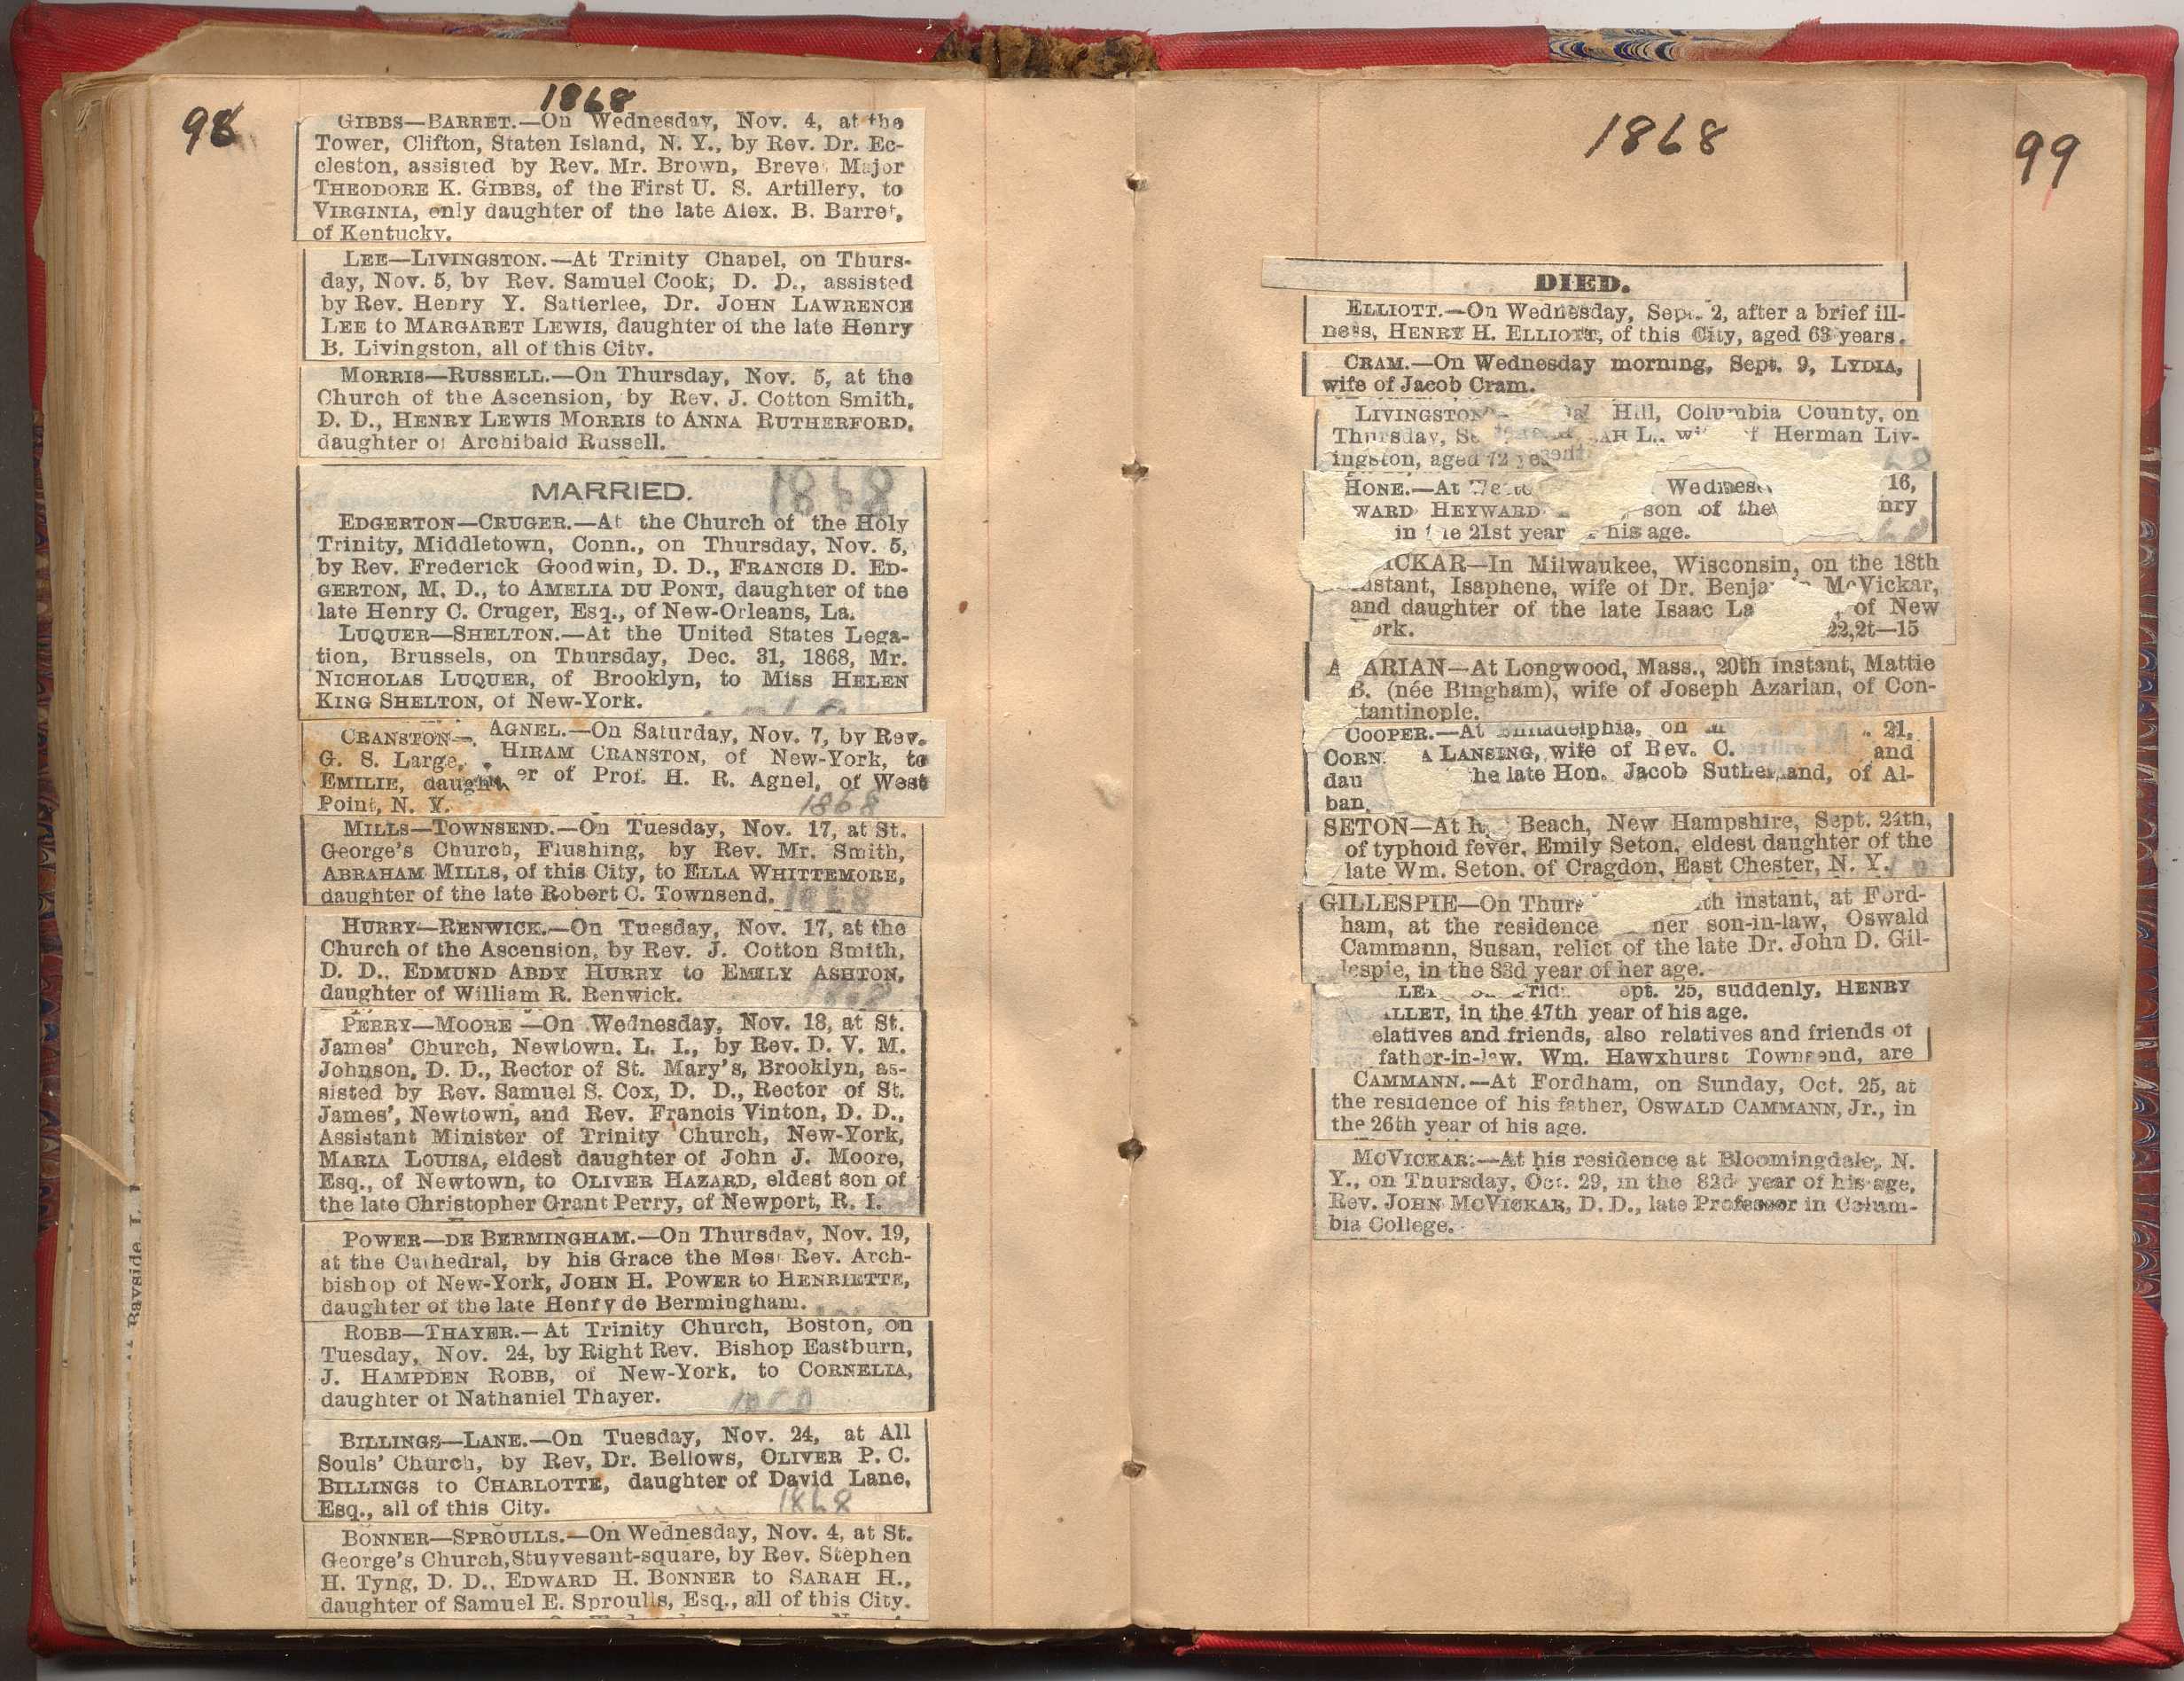 98
1868
GIBBS—BARRET.—On Wednesday, Nov. 4, at the
Tower, Clifton, Staten Island, N. Y., by Rev. Dr. Ec-
cleston, assisted by Rev. Mr. Brown, Brevet Major
THEODORE K. GIBBS, of the First U. S. Artillery, to
VIRGINIA, only daughter of the late Alex. B. Barret,
of Kentucky.
LEE—LIVINGSTON.—At Trinity Chapel, on Thurs-
day, Nov. 5, by Rev. Samuel Cook, D. D., assisted
by Rev. Henry Y. Satterlee, Dr. JOHN LAWRENCE
LEE to MARGARET LEWIS, daughter of the late Henry
B. Livingston, all of this City.
MORRIS—RUSSELL.—On Thursday, Nov. 5, at the
Church of the Ascension, by Rev. J. Cotton Smith,
D. D., HENRY LEWIS MORRIS to ANNA RUTHERFORD,
daughter of Archibald Russell.
MARRIED. 1868
EDGERTON—CRUGER.—At the Church of the Holy
Trinity, Middletown, Conn., on Thursday, Nov. 5,
by Rev. Frederick Goodwin, D. D., FRANCIS D. ED-
GERTON, M. D., to AMELIA DU PONT, daughter of the
late Henry C. Cruger, Esq., of New-Orleans, La.
LUQUER—SHELTON.—At the United States Lega-
tion, Brussels, on Thursday, Dec. 31, 1868, Mr.
NICHOLAS LUQUER, of Brooklyn, to Miss HELEN
KING SHELTON, of New-York.
CRANSTON—AGNEL.—On Saturday, Nov. 7, by Rev.
G. S. Large, HIRAM CRANSTON, of New-York, to
EMILIE, daughter of Prof. H. R. Agnel, of West
Point, N. Y. 1868
MILLS—TOWNSEND.—On Tuesday, Nov. 17, at St.
George's Church, Flushing, by Rev. Mr. Smith,
ABRAHAM MILLS, of this City, to ELLA WHITTEMORE,
daughter of the late Robert C. Townsend. 1868
HURRY—RENWICK.—On Tuesday, Nov. 17, at the
Church of the Ascension, by Rev. J. Cotton Smith,
D. D., EDMUND ABDY HURRY to EMILY ASHTON,
daughter of William R. Renwick.
PERRY—MOORE—On Wednesday, Nov. 18, at St.
James' Church, Newtown, L. I., by Rev. D. V. M.
Johnson, D. D., Rector of St. Mary's, Brooklyn, as-
sisted by Rev. Samuel S. Cox, D. D., Rector of St.
James', Newtown, and Rev. Francis Vinton, D. D.,
Assistant Minister of Trinity Church, New-York,
MARIA LOUISA, eldest daughter of John J. Moore,
Esq., of Newtown, to OLIVER HAZARD, eldest son of
the late Christopher Grant Perry, of Newport, R. I.
POWER—DE BERMINGHAM.—On Thursday, Nov. 19,
at the Cathedral, by his Grace the Most Rev. Arch-
bishop of New-York, JOHN H. POWER to HENRIETTE,
daughter of the late Henry de Bermingham.
ROBB—THAYER.—At Trinity Church, Boston, on
Tuesday, Nov. 24, by Right Rev. Bishop Eastburn,
J. HAMPDEN ROBB, of New-York, to CORNELIA,
daughter of Nathaniel Thayer.
BILLINGS—LANE.—On Tuesday, Nov. 24, at All
Souls' Church, by Rev. Dr. Bellows, OLIVER P. C.
BILLINGS to CHARLOTTE, daughter of David Lane,
Esq., all of this City. 1868
BONNER—SPROULLS.—On Wednesday, Nov. 4, at St.
George's Church, Stuyvesant-square, by Rev. Stephen
H. Tyng, D. D., EDWARD H. BONNER to SARAH H.,
daughter of Samuel E. Sproulls, Esq., all of this City.
1868
99
DIED.
ELLIOTT.—On Wednesday, Sept. 2, after a brief ill-
ness, HENRY H. ELLIOTT, of this City, aged 63 years.
CRAM.—On Wednesday morning, Sept. 9, LYDIA,
wife of Jacob Cram.
LIVINGSTON Hill, Columbia County, on
Thursday, L., wife of Herman Liv-
ingston, aged 72 years
HONE.—At 16,
WARD HEYWARD son of the
in the 21st year his age.
CKAR—In Milwaukee, Wisconsin, on the 18th
instant, Isaphene, wife of Dr. Benjamin McVickar,
and daughter of the late Isaac of New
York. 22,2t—15
ARIAN—At Longwood, Mass., 20th instant, Mattie
B. (née Bingham), wife of Joseph Azarian, of Con-
stantinople.
COOPER.—At Philadelphia, on 21,
LANSING, wife of Rev. C. and
the late Hon. Jacob Sutherland, of Al-
ban
SETON—At Beach, New Hampshire, Sept. 24th,
of typhoid fever, Emily Seton, eldest daughter of the
late Wm. Seton, of Cragdon, East Chester, N. Y.
GILLESPIE—On th instant, at Ford-
ham, at the residence her son-in-law, Oswald
Cammann, Susan, relict of the late Dr. John D. Gil-
lespie, in the 83d year of her age.
Sept. 25, suddenly, HENRY
LLET, in the 47th year of his age.
elatives and friends, also relatives and friends of
father-in-law, Wm. Hawxhurst Townsend, are
CAMMANN.—At Fordham, on Sunday, Oct. 25, at
the residence of his father, OSWALD CAMMANN, Jr., in
the 26th year of his age.
MCVICKAR.—At his residence at Bloomingdale, N.
Y., on Thursday, Oct. 29, in the 82d year of his age,
Rev. JOHN MCVICKAR, D. D., late Professor in Colum-
bia College.